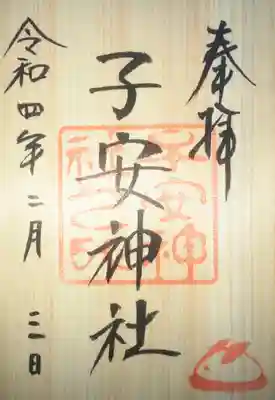 奉拝
子安神社
子安神社之印
令和四年二月三日